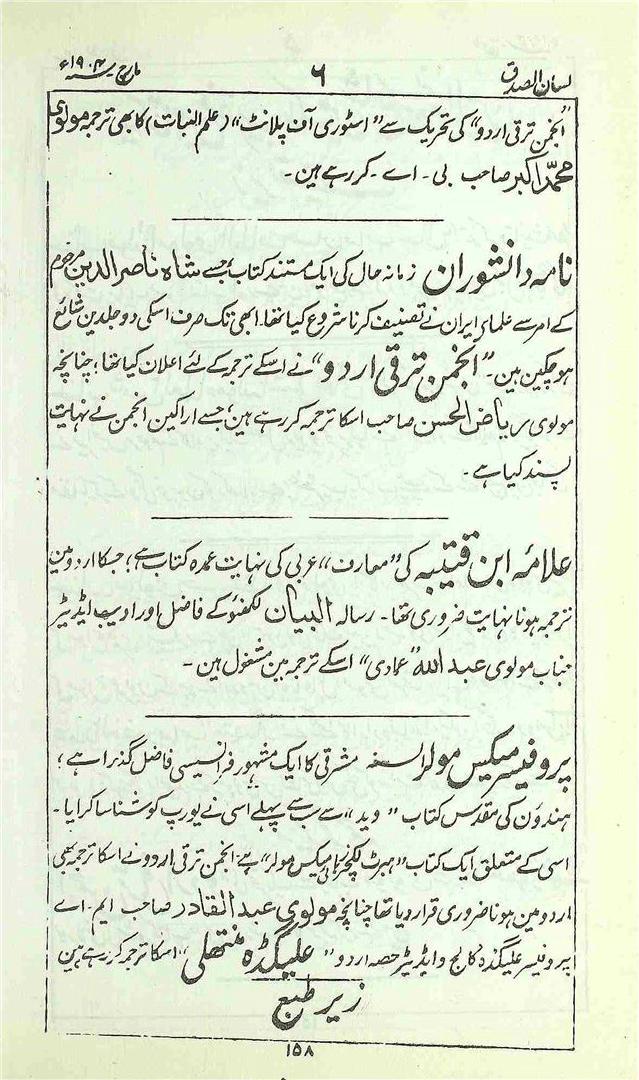 لسان الصدق
۶
مارچ ۱۹۰۴ء
"انجمن ترقی اردو" کی تحریک سے "اسٹوری آف پلانٹ" (علم النبات) کا بھی ترجمہ مولوی
محمد اکبر صاحب بی - اے - کر رہے ہین -
نامہ دانشوران زمانہ حال کی ایک مستند کتاب ہے جسے شاہ ناصر الدین مرحوم
کے امر سے علمای ایران نے تصنیف کرنا شروع کیا تھا۔ ابھی تک صرف اسکی دو جلدین شائع
ہو چکین ہین - "انجمن ترقی اردو" نے اسکے ترجمہ کے لئے اعلان کیا تھا؛ چنانچہ
مولوی ریاض الحسن صاحب اسکا ترجمہ کر رہے ہین؛ جسے اراکین انجمن نے نہایت
پسند کیا ہے -
علامہ ابن قتیبہ کی "معارف" عربی کی نہایت عمدہ کتاب ہے؛ جسکا اردو مین
ترجمہ ہونا نہایت ضروری تھا - رسالہ البیان لکھنؤ کے فاضل اور ادیب ایڈیٹر
جناب مولوی عبد اللہ "عمادی" اسکے ترجمہ مین مشغول ہین -
پروفیسر میکس مولر السنہ مشرقی کا ایک مشہور فرانسیسی فاضل گذرا ہے؛
ہندؤن کی مقدس کتاب "وید" سے سب سے پہلے اسی نے یورپ کو شناسا کرایا -
اسی کے متعلق ایک کتاب "ہبرٹ لکچرز میکس مولر" ہے انجمن ترقی اردو نے اسکا ترجمہ بھی
اردو مین ہونا ضروری قرار دیا تھا چنانچہ مولوی عبد القادر صاحب ایم - اے
پروفیسر علیگڈہ کالج و ایڈیٹر حصہ اردو "علیگڈہ منتھلی" اسکا ترجمہ کر رہے ہین
زیر طبع
۱۵۸